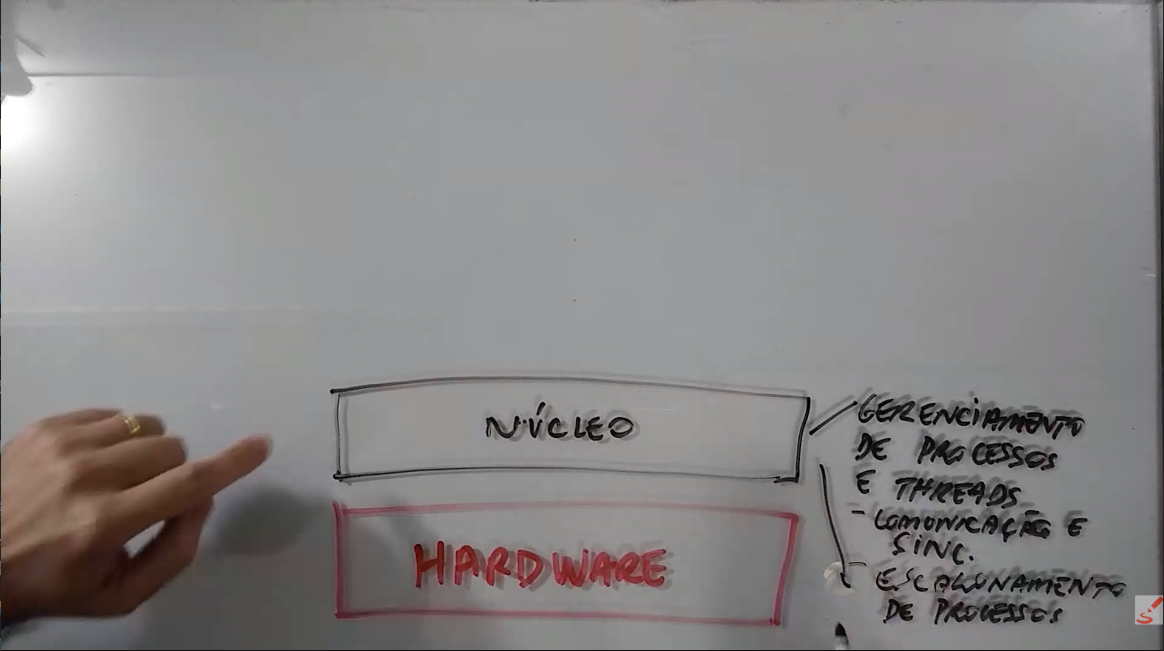 NÚCLEO
HARDWARE
GERENCIAMENTO
DE PROCESSOS
E THREADS
- COMUNICAÇÃO E
SINC.
- ESCALONAMENTO
DE PROCESSOS
S